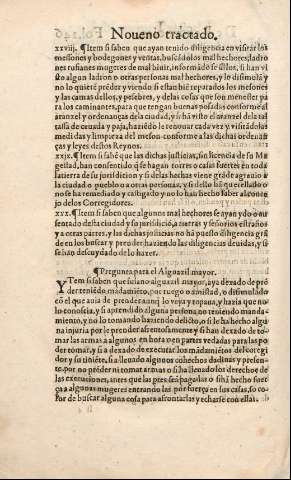 Noueno tractado.
xxviij. ¶ Item si saben que ayan tenido diligencia en visitar los
mesones y bodegones y ventas, buscãdo los mal hechores, ladro
nes rufianes mugeres de mal biuir, informãdose dellos, si han vi
sto algun ladron o otras personas mal hechores, y lo dissimulã y
no lo quierẽ prẽder y viendo si estan biẽ reparados los mesones
y las camas dellos, y pesebres, y de las cosas que son menester pa
ra los caminantes, para que tengan buenas posadas conforme al
aranzel y ordenanças dela ciudad, y si hã visto el aranzel dela tal
tassa de ceuada y paja, haziẽdole renouar cada vez y visitãdo las
medidas y limpieza del meson conforme a las dichas ordenãn
ças y leyes destos Reynos.
xxix. ¶ Item si sabẽ que las dichas justicias, sin licencia de su Ma
gestad, han consentido q̃ se hagan torres o casas fuertes en toda
la tierra de su jurisdicion y si delas hechas viene grãde agrauio a
la ciudad o pueblo o a otras personas, y si dello hã querellado o
no se ha remediado y castigado y no lo han hecho saber al conse
jo delos Corregidores.
xxx. ¶ Item si saben que algunos mal hechores se ayan ydo o au
sentado desta ciudad y su jurisdiciõ, a tierras y señorios estraños
y a otras partes, y las dichas justicias no ha puesto diligẽcia grã
de en los buscar y prender haziendo las diligencias deuidas, y si
se han descuydado de lo hazer.
¶ Pregunta para el Alguazil mayor.
YTem si saben que fulano alguazil mayor, aya dexado de prẽ
der teniẽdo mãdamiẽto, por ruego o amistad, o dissimulan
do cõ el que auia de prender aunq̃ lo veya y topaua, y hazia que no
lo conoscia, y si aprendido alguna persona, no teniendo manda-
miento, y no lo tomando haziendo delicto, o si le ha hecho algu
na injuria por le prender afrentosamente y si han dexado de to-
mar las armas a algunos en hora o en partes vedadas para las po
der tomar, y si a dexado de executar los mãdamiẽtos del corregi
dor y su tiniẽte, si a lleuado algunos cohechos dadiuas y presen-
tes por no prẽder ni tomar armas o si ha lleuado los derechos de
las execuciones, antes que las ptes seã pagadas o si hã hecho fuer
ça a algunas mugeres entrando las por fuerça en sus casas, so co-
lor de buscar alguna cosa para afrontarlas y echarse con ellas.